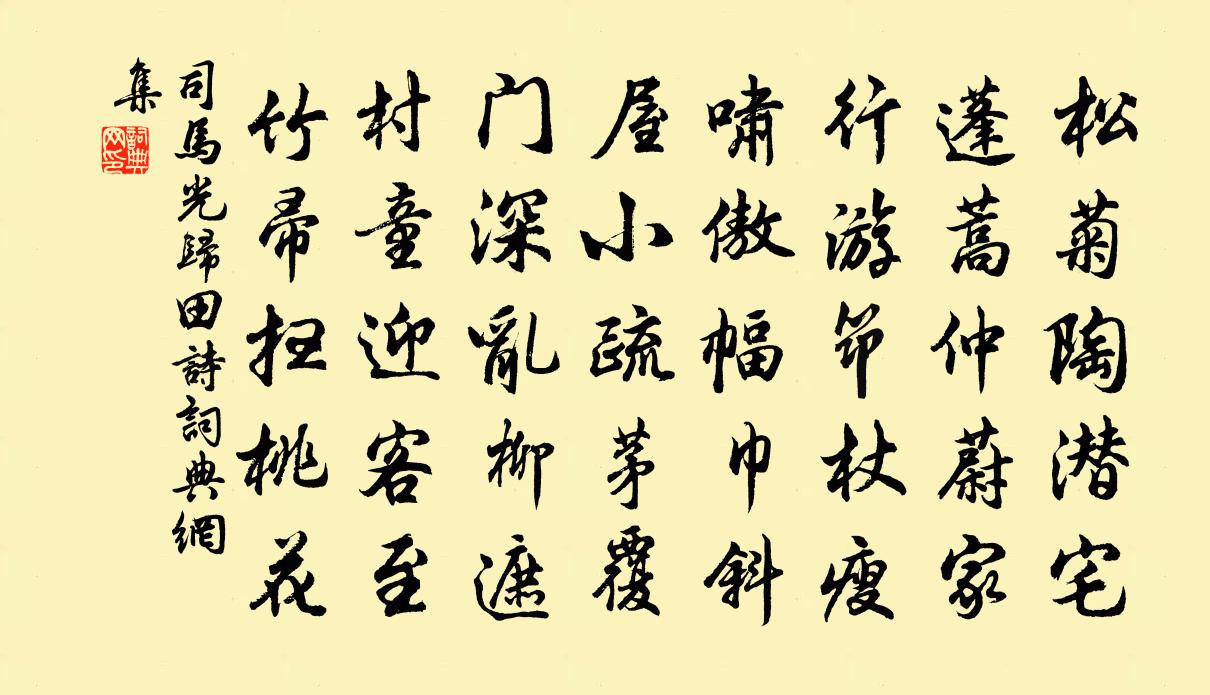 松菊陶潜宅
蓬蒿仲蔚家
行游筇杖瘦
啸傲幅巾斜
屋小疏茅覆
门深乱柳遮
村童迎客至
竹帚扫桃花
司馬光歸田詩詞典網
集
詞典网印